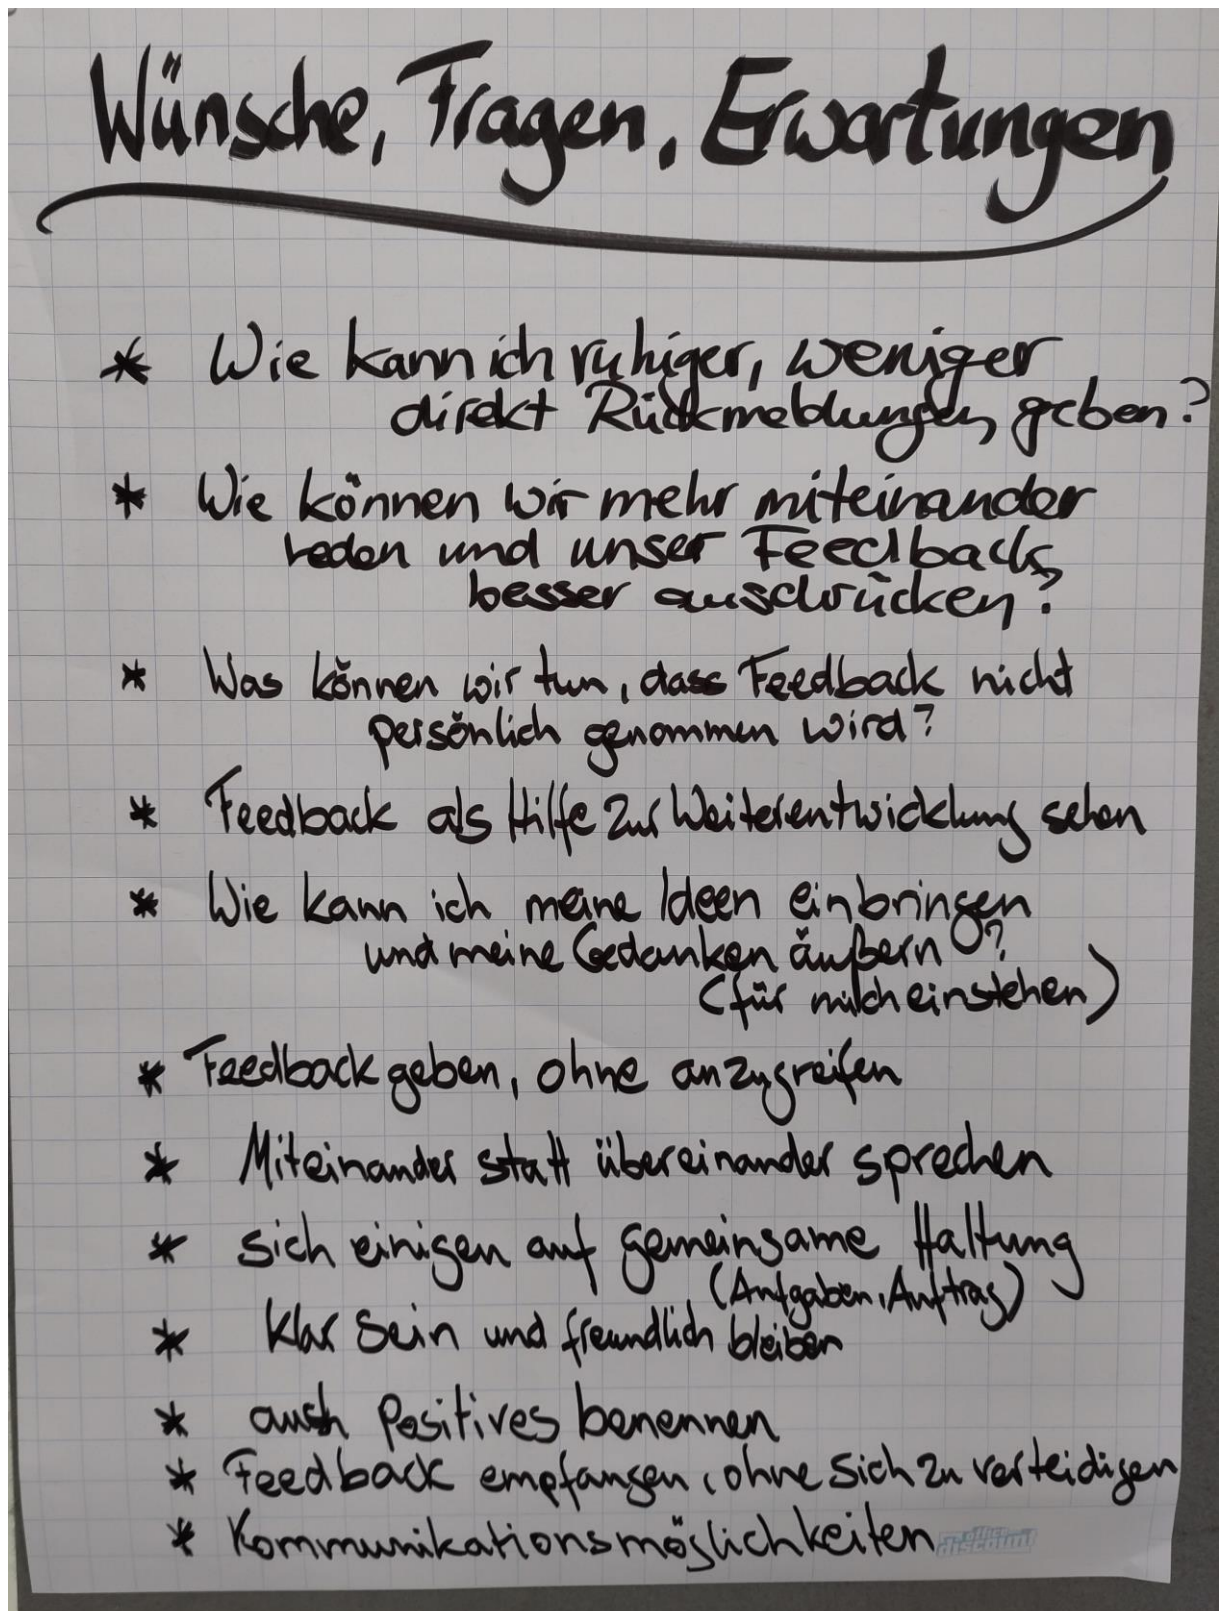 Wünsche, Fragen, Erwartungen
* Wie kann ich ruhiger, weniger
direkt Rückmeldungen geben?
* Wie können wir mehr miteinander
reden und unser Feedback
besser ausdrücken?
* Was können wir tun, dass Feedback nicht
persönlich genommen wird?
* Feedback als Hilfe zur Weiterentwicklung sehen
* Wie kann ich meine Ideen einbringen
und meine Gedanken äußern?
(für mich einstehen)
* Feedback geben, ohne anzugreifen
* Miteinander statt übereinander sprechen
* sich einigen auf gemeinsame Haltung
(Aufgaben, Auftrag)
* klar sein und freundlich bleiben
* auch Positives benennen
* Feedback empfangen, ohne sich zu verteidigen
* Kommunikationsmöglichkeiten
office discount